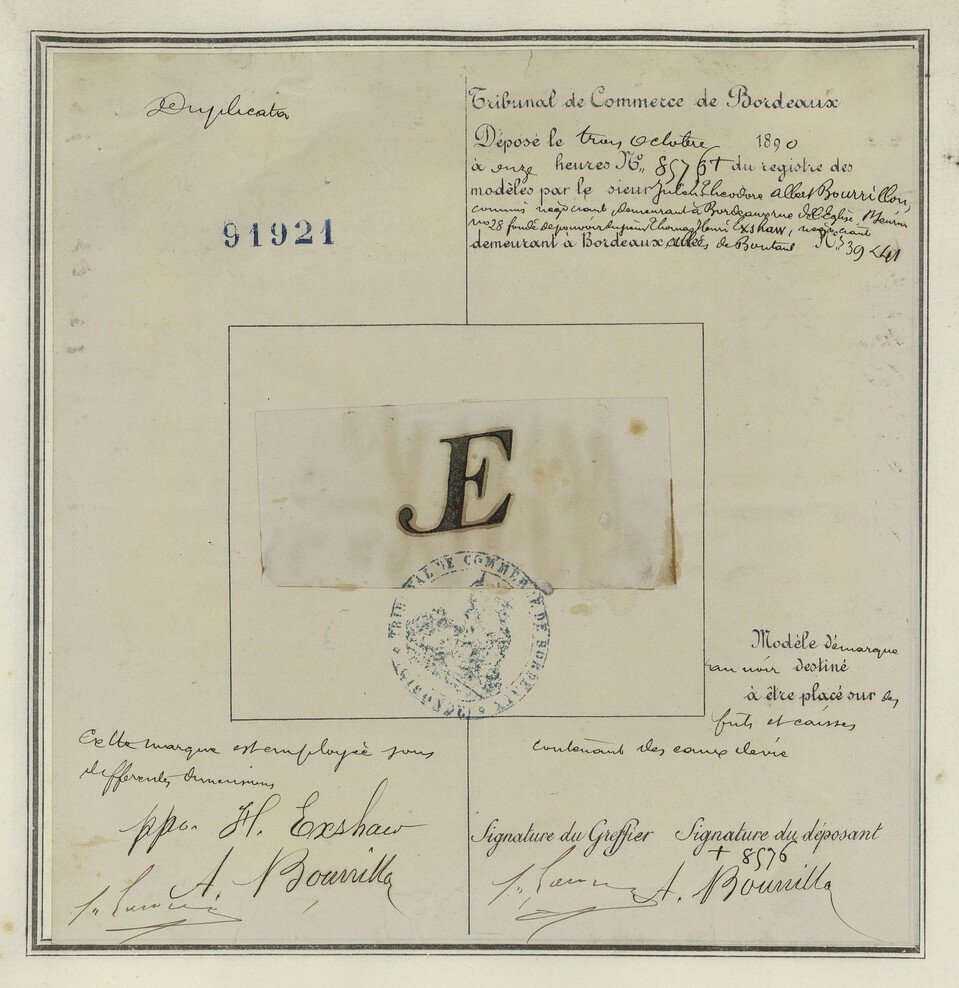 Duplicata
91921
Tribunal de Commerce de Bordeaux
Déposé le trois Octobre 1890
à onze heures No. 8576 + du registre des
modèles par le sieur Jules Théodore Albert Bourrillon,
commis négociant demeurant à Bordeaux rue de l'Eglise St Seurin
no 28 fondé de pouvoirs du sieur Thomas Henri Exshaw, négociant
demeurant à Bordeaux allées de Boutaut Nos 39 & 41
JE
TRIBUNAL DE COMMERCE DE BORDEAUX
Modèle de marque
en noir destiné
à être placé sur des
futs et caisses
contenant des eaux de vie
Cette marque est employée sous
différentes dimensions
ppon. H. Exshaw
A. Bourrillon
Signature du Greffier Signature du déposant
+ 8576
A. Bourrillon